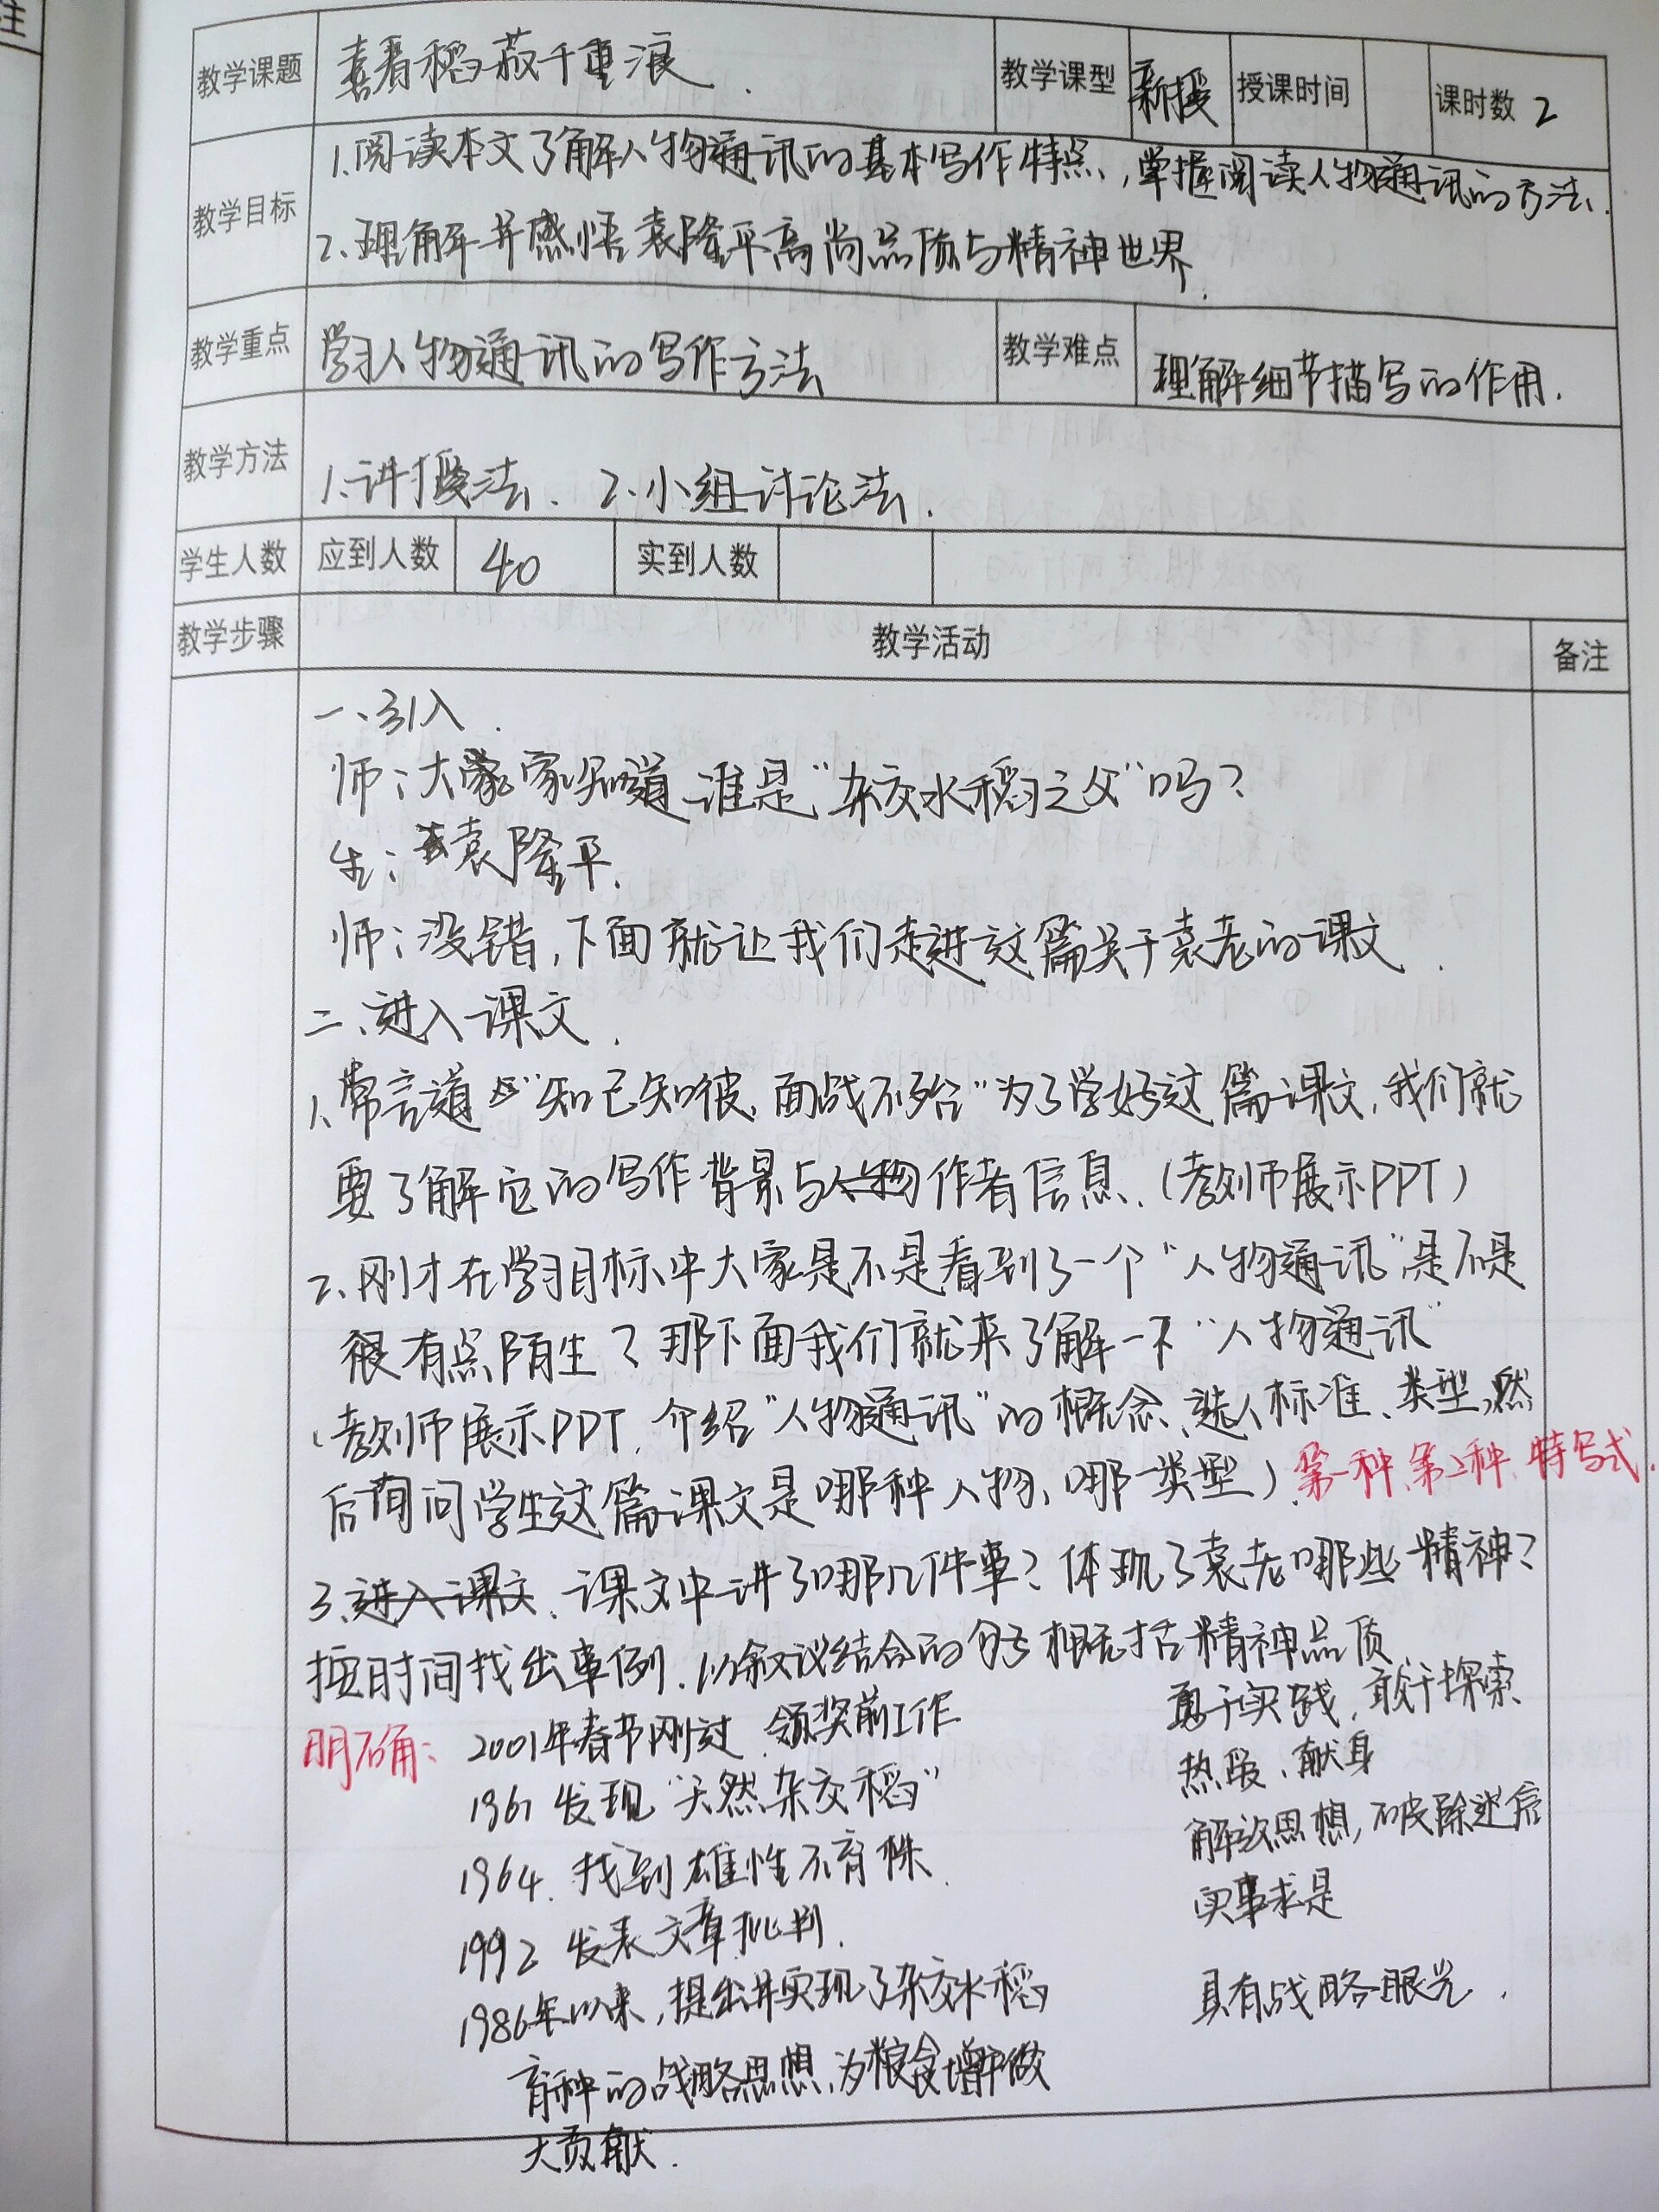 注
教学课题 喜看稻菽千重浪. 教学课型 新授 授课时间 课时数 2
教学目标 1.阅读本文了解人物通讯的基本写作特点,掌握阅读人物通讯的方法.
2.理解并感悟袁隆平高尚品质与精神世界.
教学重点 学习人物通讯的写作方法 教学难点 理解细节描写的作用.
教学方法 1.讲授法. 2.小组讨论法.
学生人数 应到人数 40 实到人数
教学步骤 教学活动 备注
一、引入.
师:大家知道谁是“杂交水稻之父”吗?
生:袁隆平.
师:没错,下面就让我们走进这篇关于袁老的课文.
二、进入课文.
1.常言道“知己知彼,百战不殆”为了学好这篇课文,我们就
要了解它的写作背景与作者信息.(教师展示PPT)
2.刚才在学习目标中大家是不是看到了一个“人物通讯”是不是
很有点陌生?那下面我们就来了解一下“人物通讯”
(教师展示PPT,介绍“人物通讯”的概念、选人标准、类型,然
后询问学生这篇课文是哪种人物、哪一类型).第一种、第二种、特写式.
3.进入课文.课文中讲了哪几件事?体现了袁老哪些精神?
按时间找出事例.以叙议结合的句子概括精神品质
明确: 2001年春节刚过,领奖前工作 勇于实践,敢于探索
1961 发现“天然杂交稻” 热爱、献身
1964.找到雄性不育株. 解放思想,破除迷信
1992 发表文章批判. 实事求是
1986年以来,提出并实现了杂交水稻 具有战略眼光.
育种的战略思想,为粮食增产做
大贡献.